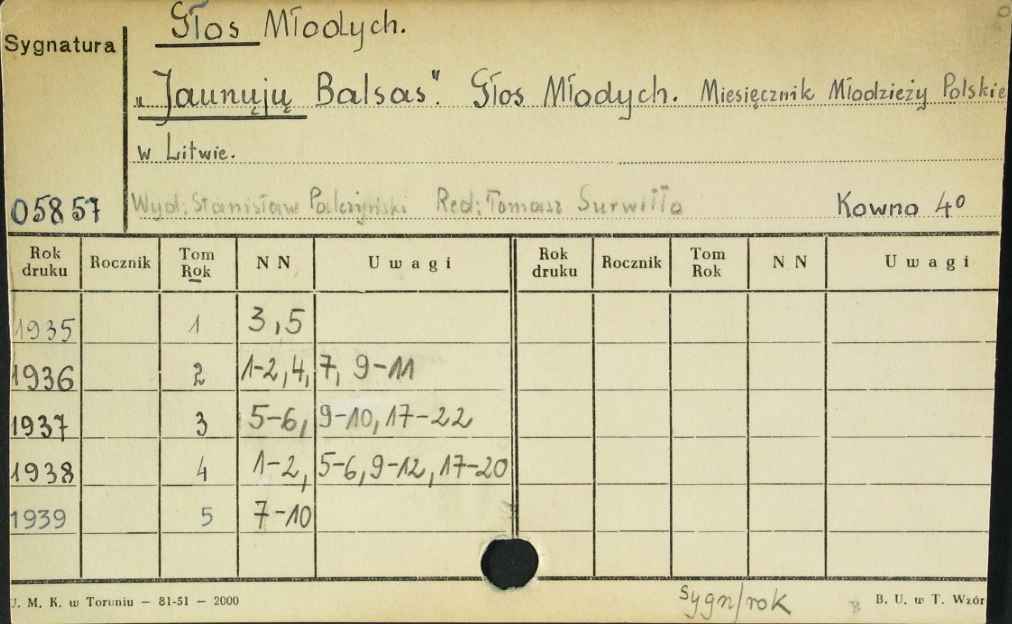 Głos Młodych.
Sygnatura
„Jaunųjų Balsas". Głos Młodych. Miesięcznik Młodzieży Polskie
w Litwie.
05857 Wyd: Stanisław Pałczyński Red: Tomasz Surwiłło Kowno 4º
Rok druku Rocznik Tom Rok NN Uwagi Rok druku Rocznik Tom Rok NN Uwagi
1935 1 3,5
1936 2 1-2,4, 7, 9-11
1937 3 5-6, 9-10, 17-22
1938 4 1-2, 5-6, 9-12, 17-20
1939 5 7-10
sygn/rok
U. M. K. w Toruniu — 81-51 — 2000 B. U. w T. Wzór